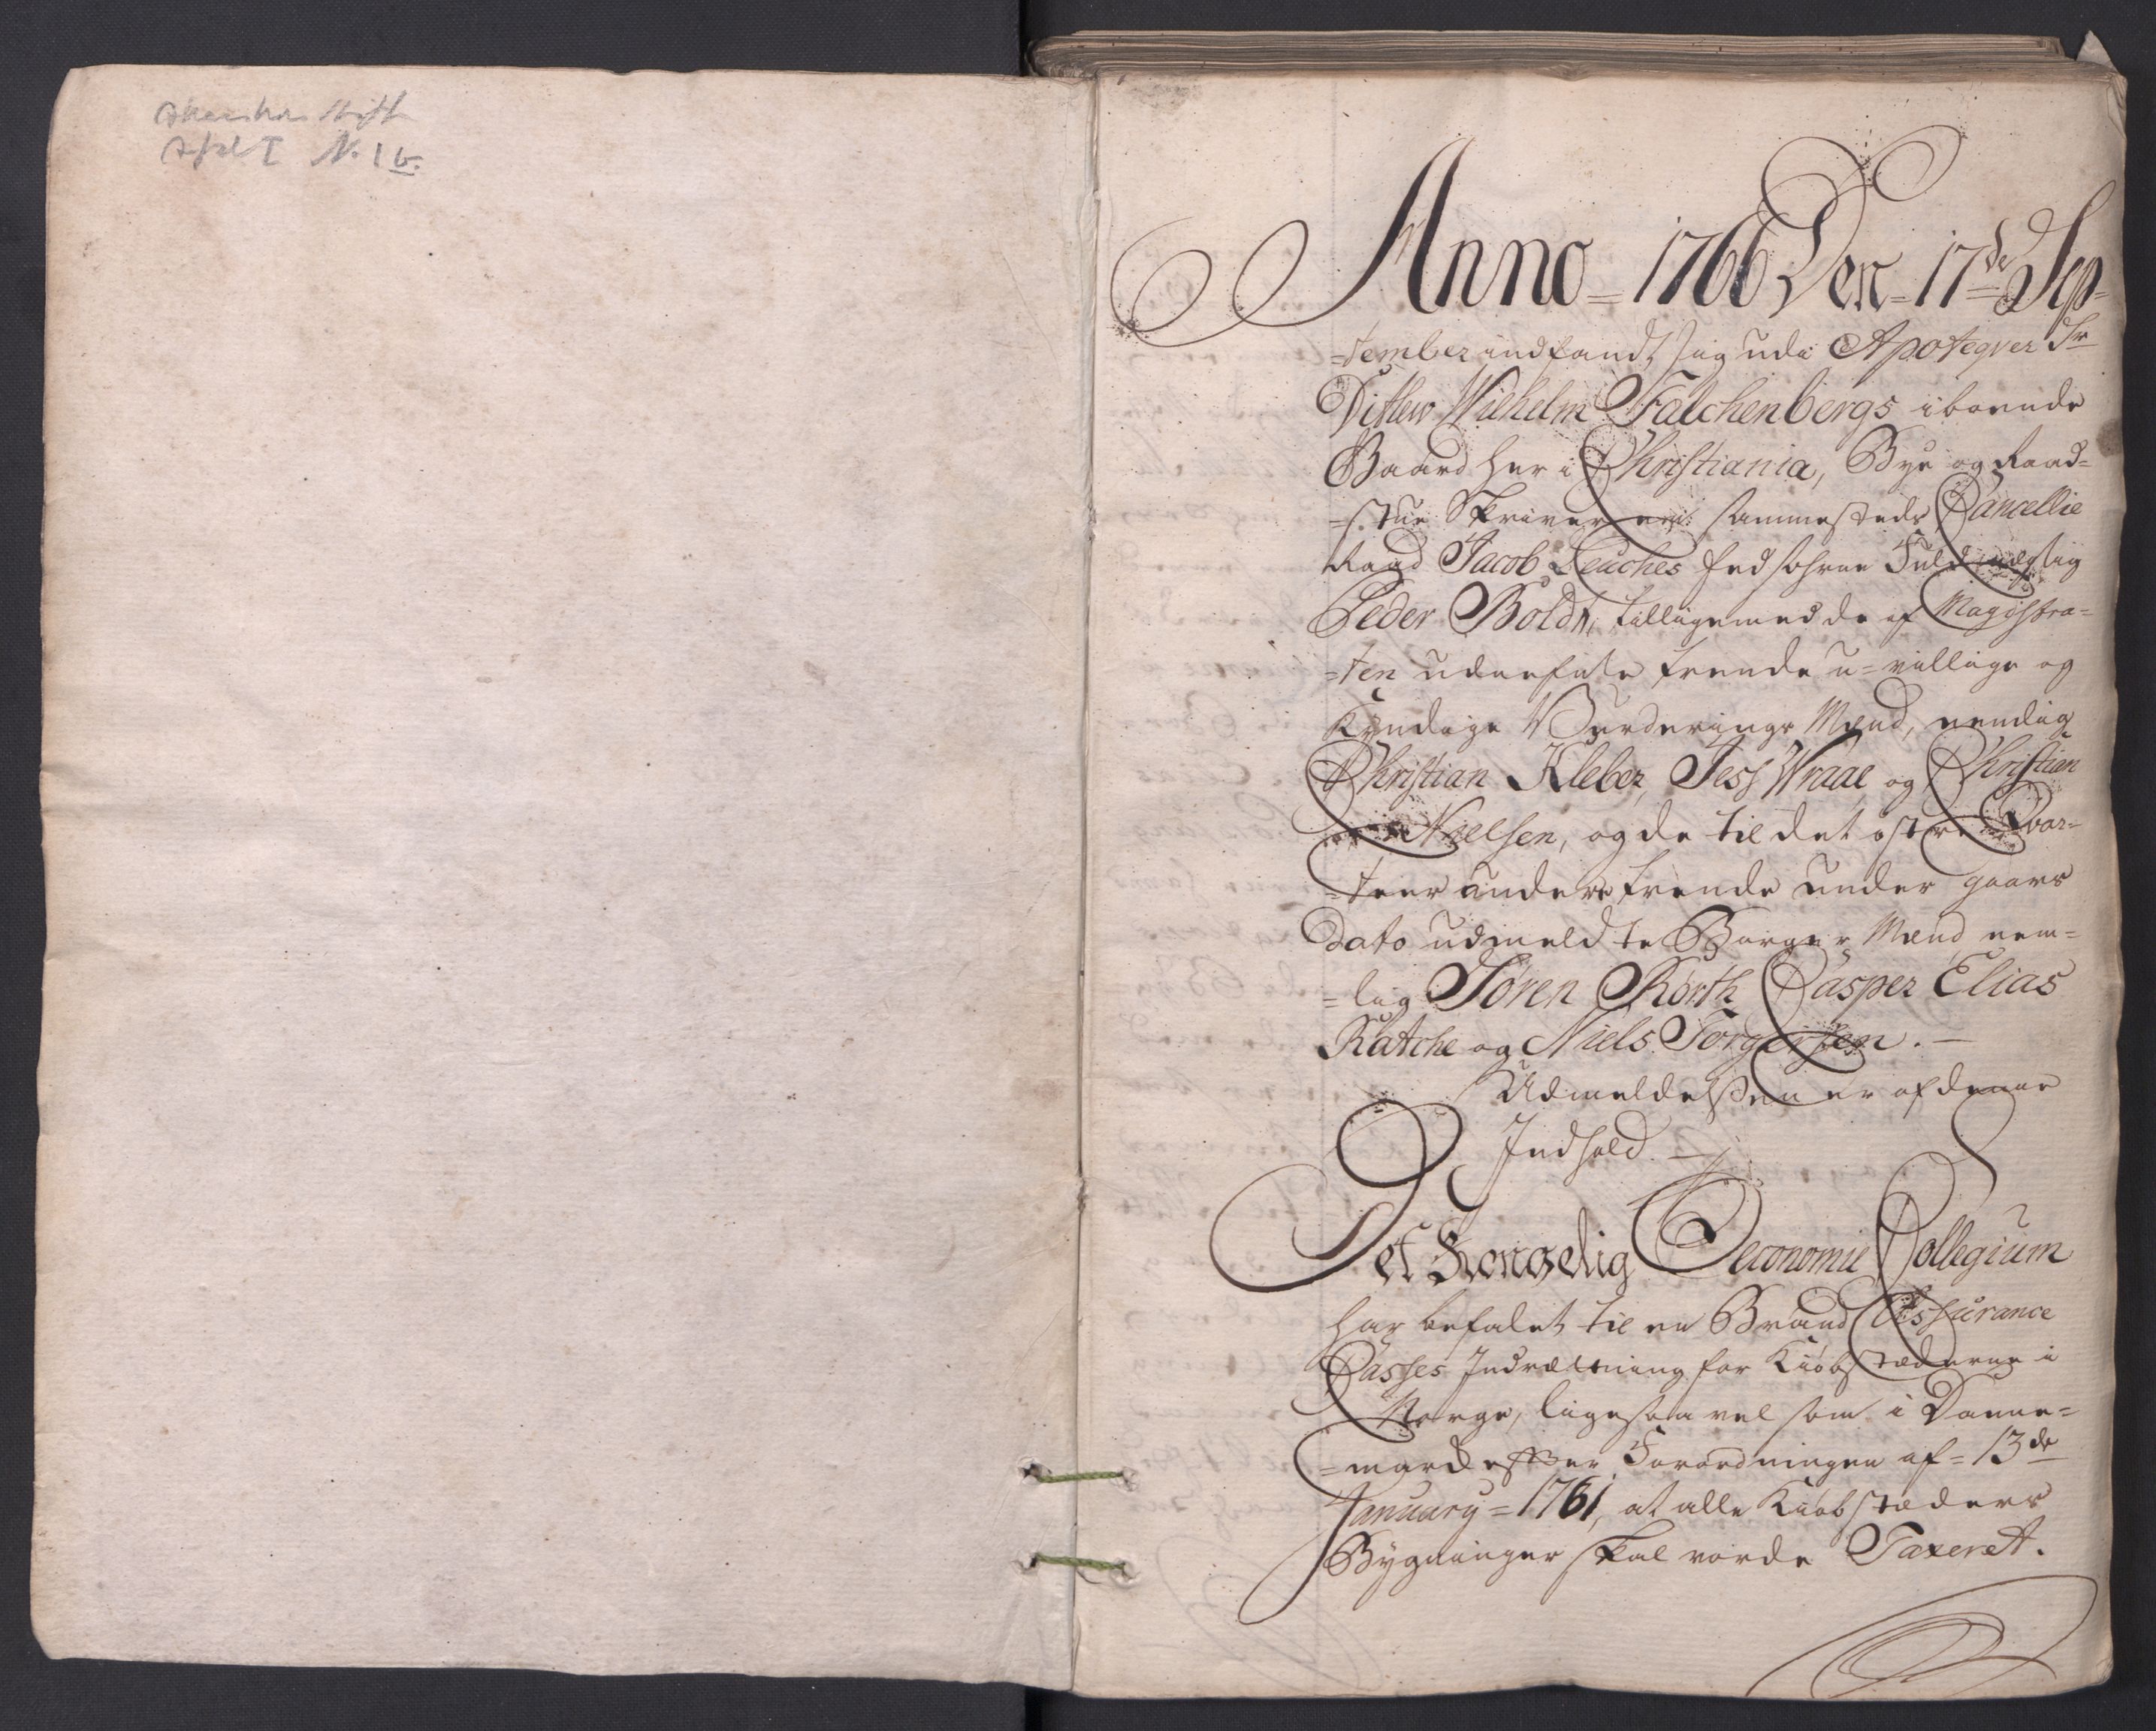 Akershus Stift
No. 1 b.
Anno = 1766 Den = 17de Sep=
=tember indfandt sig udi Apoteqver Sr
Ditlew Wilhelm Falchenbergs iboende
Gaard her i Christiania, Bye og Raad=
=stue Skriveren sammesteds Cancellie
Raad Jacob Leuches Fuldmægtig
Peder Boldt, tilligemed de af Magistra=
=ten udnefnte trende u=villige og
Kyndige Vurderings Mænd, nemlig
Christian Kleber, Jess Wraae og Christian
Nielsen, og de til det østre Qvar=
=teer andere trende under gaars
Dato udmeldte Borger Mænd nem=
=lig Søren Rørth Casper Elias
Katche og Niels Torgersen. —
Udmeldelsen er af denne
Indhold. —
Det Kongelig Oeconomie Collegium
har befalet til en Brand Assurance
Casses Indrætning for Kiøbstæderne i
Norge, ligesaavel som i Danne=
=mark efter Forordningen af = 13de
January = 1761, at alle Kiøbstæders
Bygninger skal vorde Taxeret.